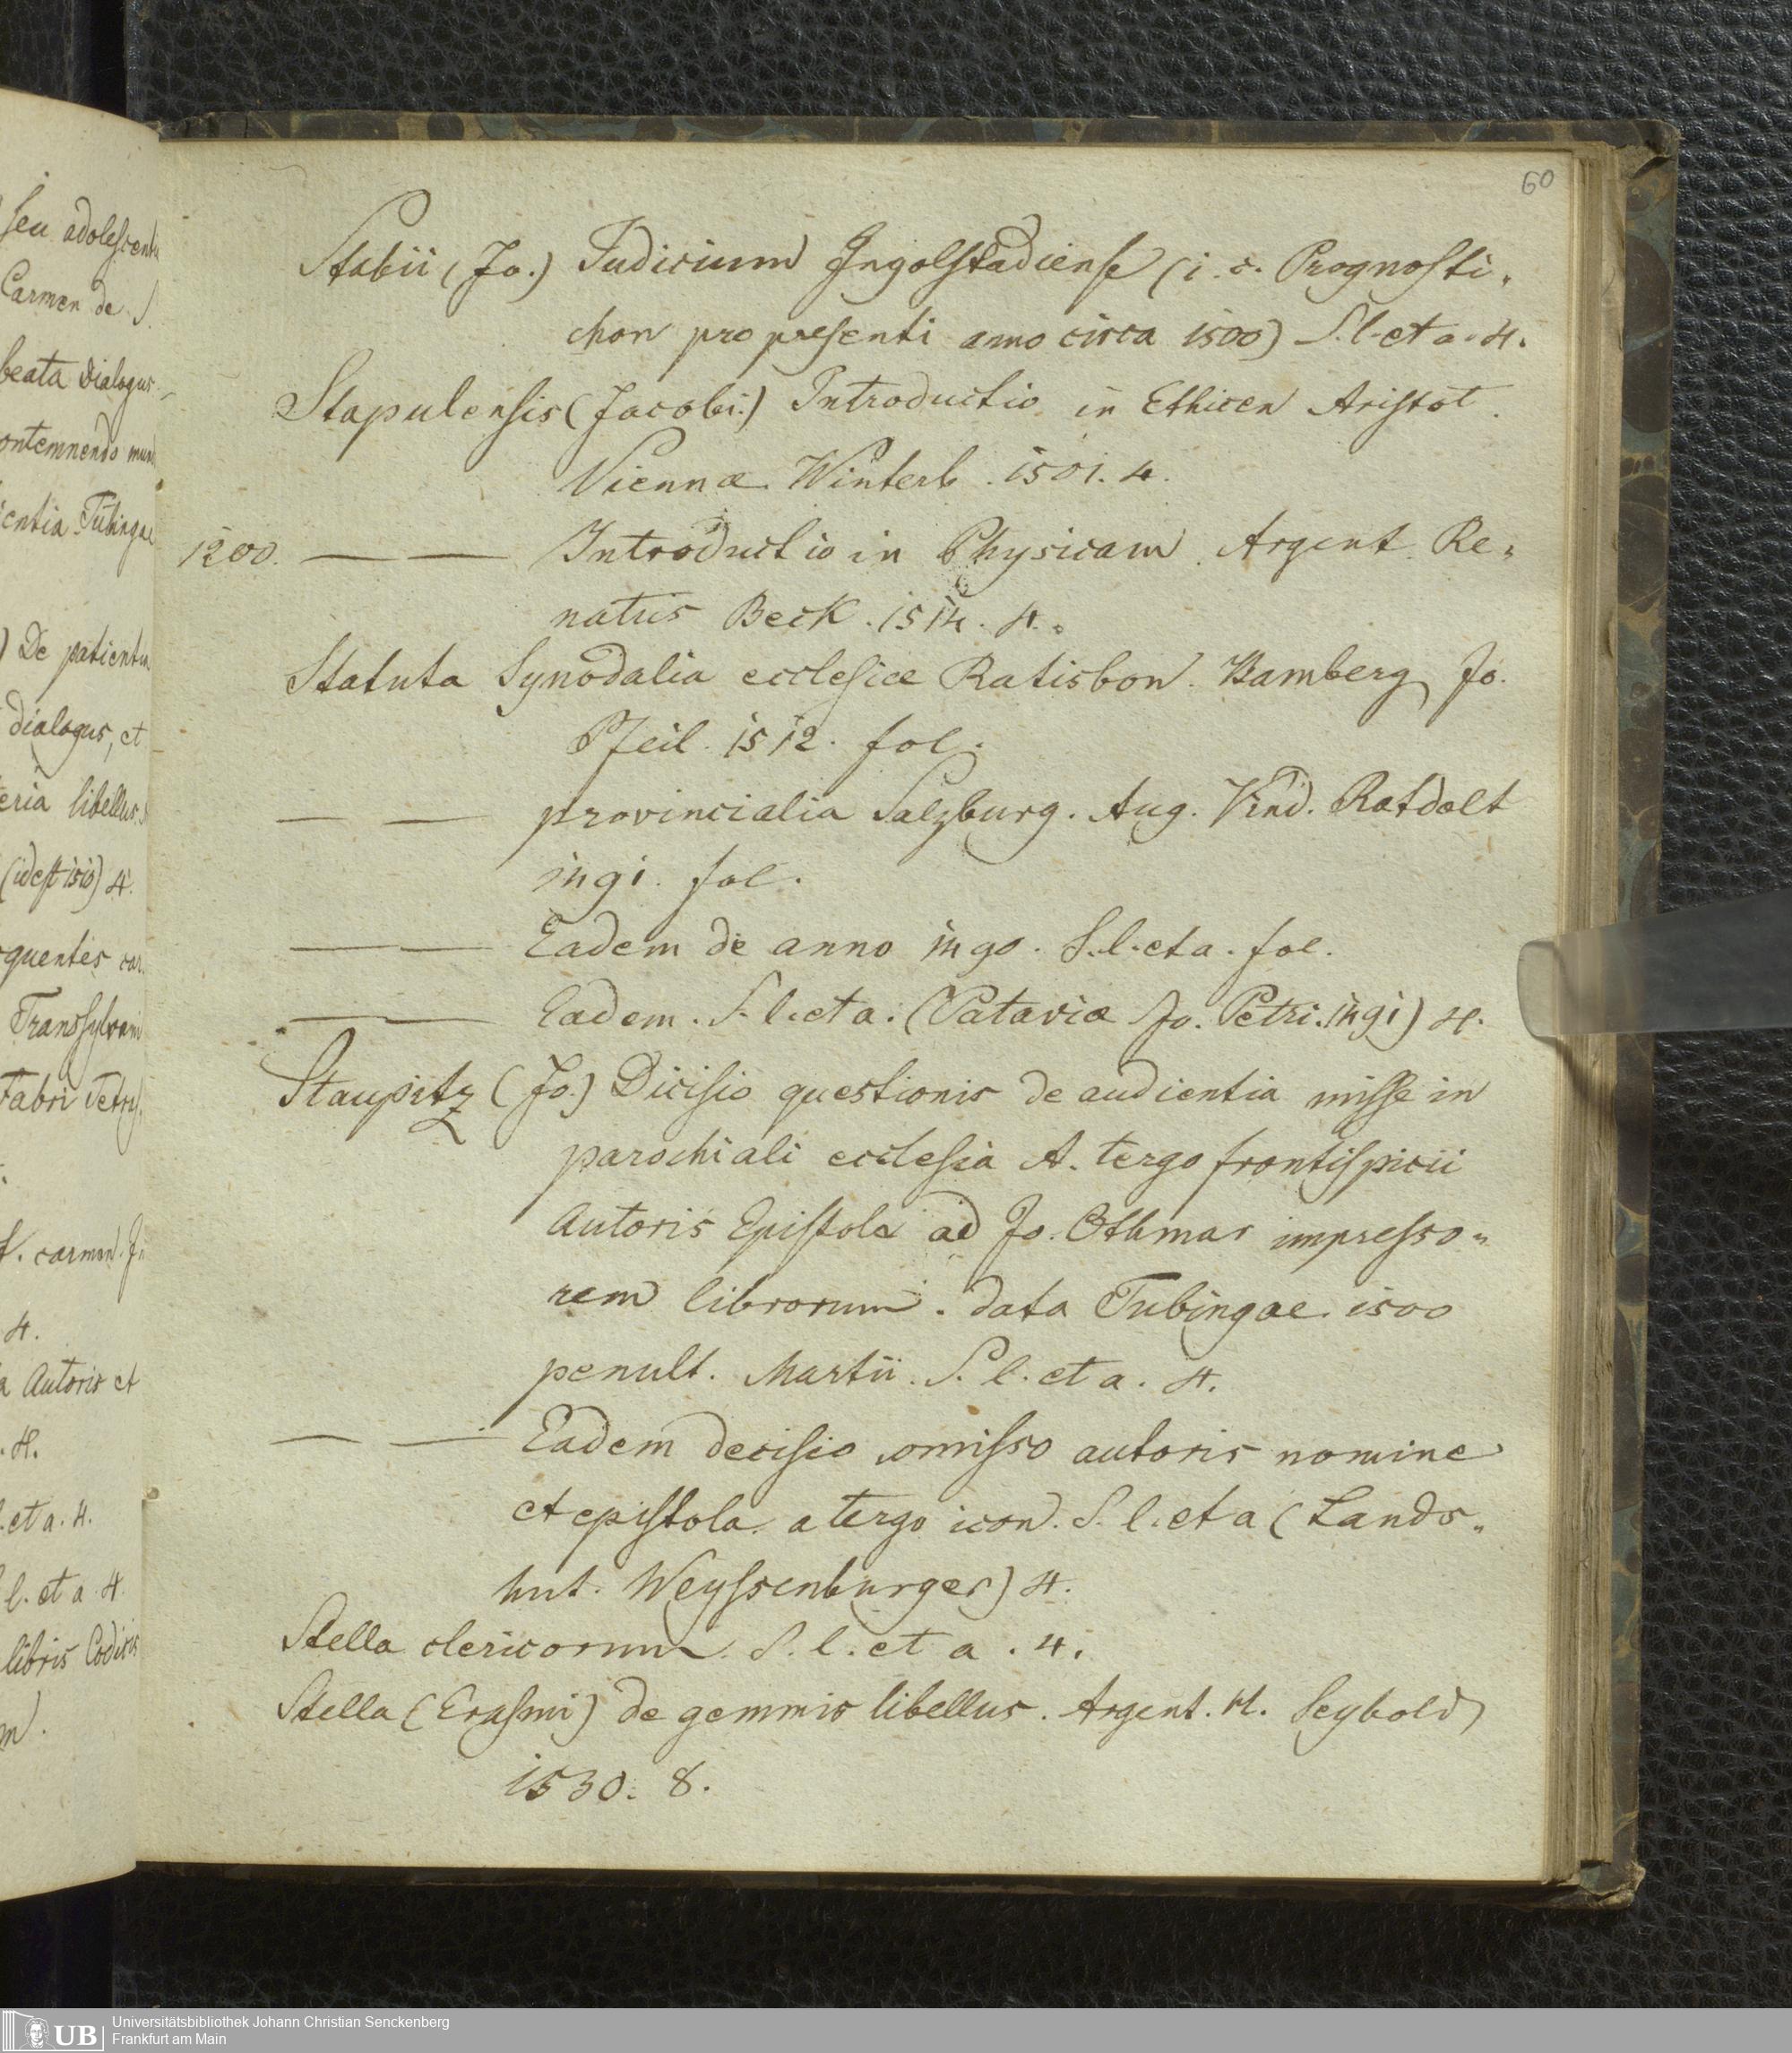 60
Stabii (Jo.) Judicium Ingolstadiense (i. e. Prognosti-
chon pro presenti anno circa 1500) S. l. et a. 4.
Stapulensis (Jacobi.) Introductio in Ethicen Aristot.
Viennæ Winterb. 1501. 4.
1200. — — Introductio in Physicam. Argent. Re-
natus Beck. 1514. 4.
Statuta Synodalia ecclesiæ Ratisbon. Bamberg Jo.
Pfeil. 1512. fol.
— — provincialia Salzburg. Aug. Vind. Ratdolt
1491. fol.
— — Eadem de anno 1490. S. l. et a. fol.
— — Eadem. S. l. et a. (Pataviæ Jo. Petri. 1491) 4.
Staupitz (Jo.) Dicisio questionis de audientia misse in
parochiali ecclesia A. tergo frontispicii
Autoris Epistola ad Jo. Othmar impresso-
rem librorum. data Tubingae. 1500
penult. Martii. S. l. et a. 4.
— — Eadem decisio omisso autoris nomine
et epistola. a tergo icon. S. l. et a (Lands-
hut. Weyssenburger) 4.
Stella clericorum. S. l. et a. 4.
Stella (Erasmi) de gemmis libellus. Argent. H. Seybold
1530. 8.
seu adolescenti
Carmen de S.
beata dialogus
ontemnendo mun
ientia Tubingae
) De patientia
dialogus, et
eria libellus. S
(id est 1510) 4.
quentes car.
Transsylvani
Fabri
f. carmen. Ju
4.
a Autoris et
. 4.
. et a. 4.
l. et a 4
libris Codicis
m.
UB
Universitätsbibliothek Johann Christian Senckenberg
Frankfurt am Main